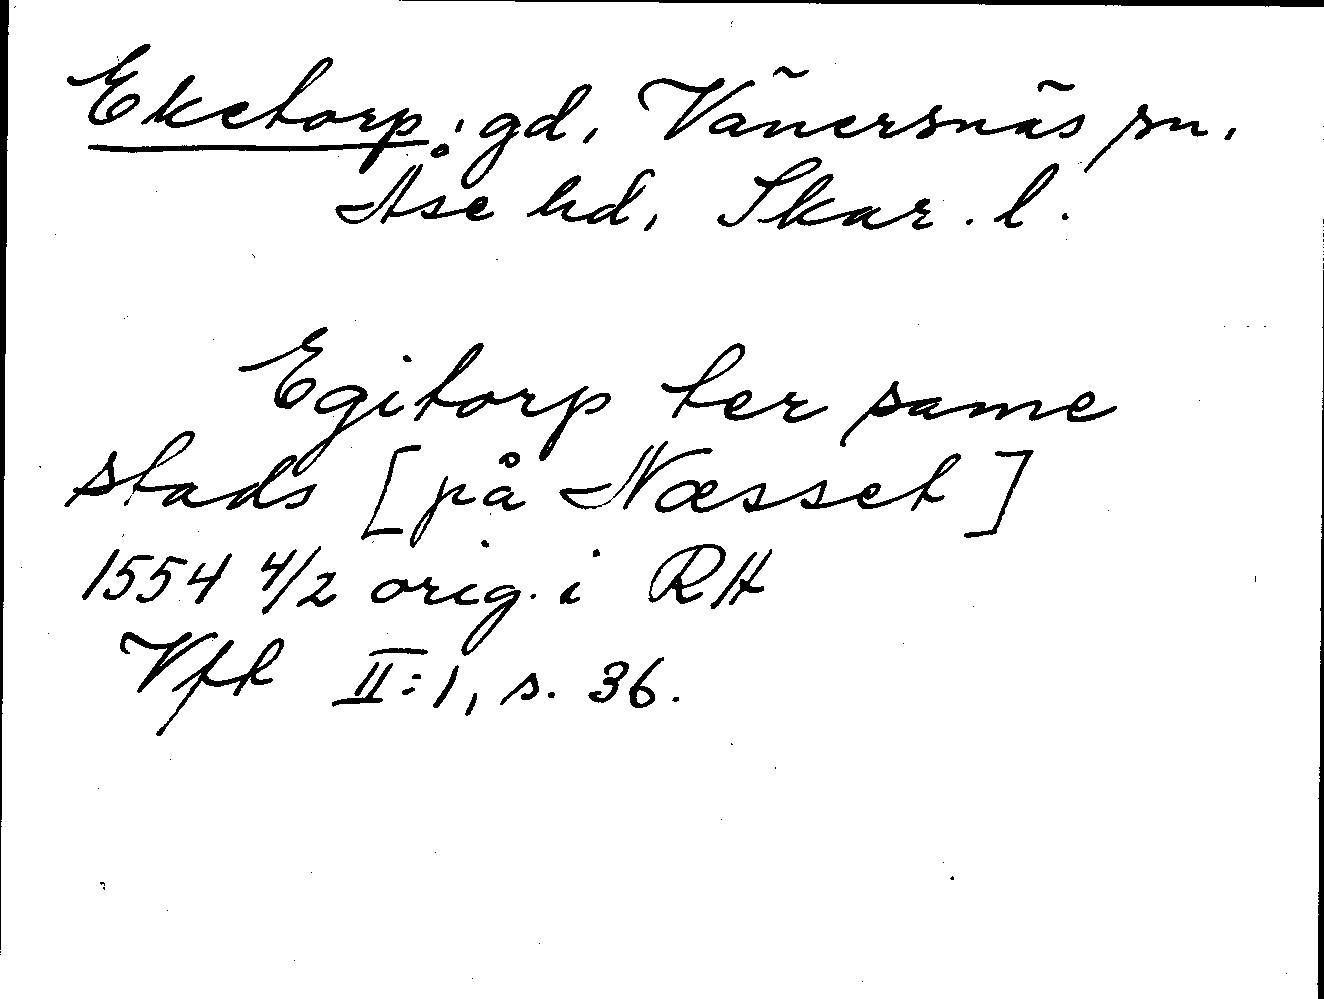 Eketorp, gd, Vänersnäs sn.
Åse hd, Skar. l.
Egitorp ter same
stads [på Næsset]
1554 4/2 orig. i RH
Vfh II:1, s. 36.